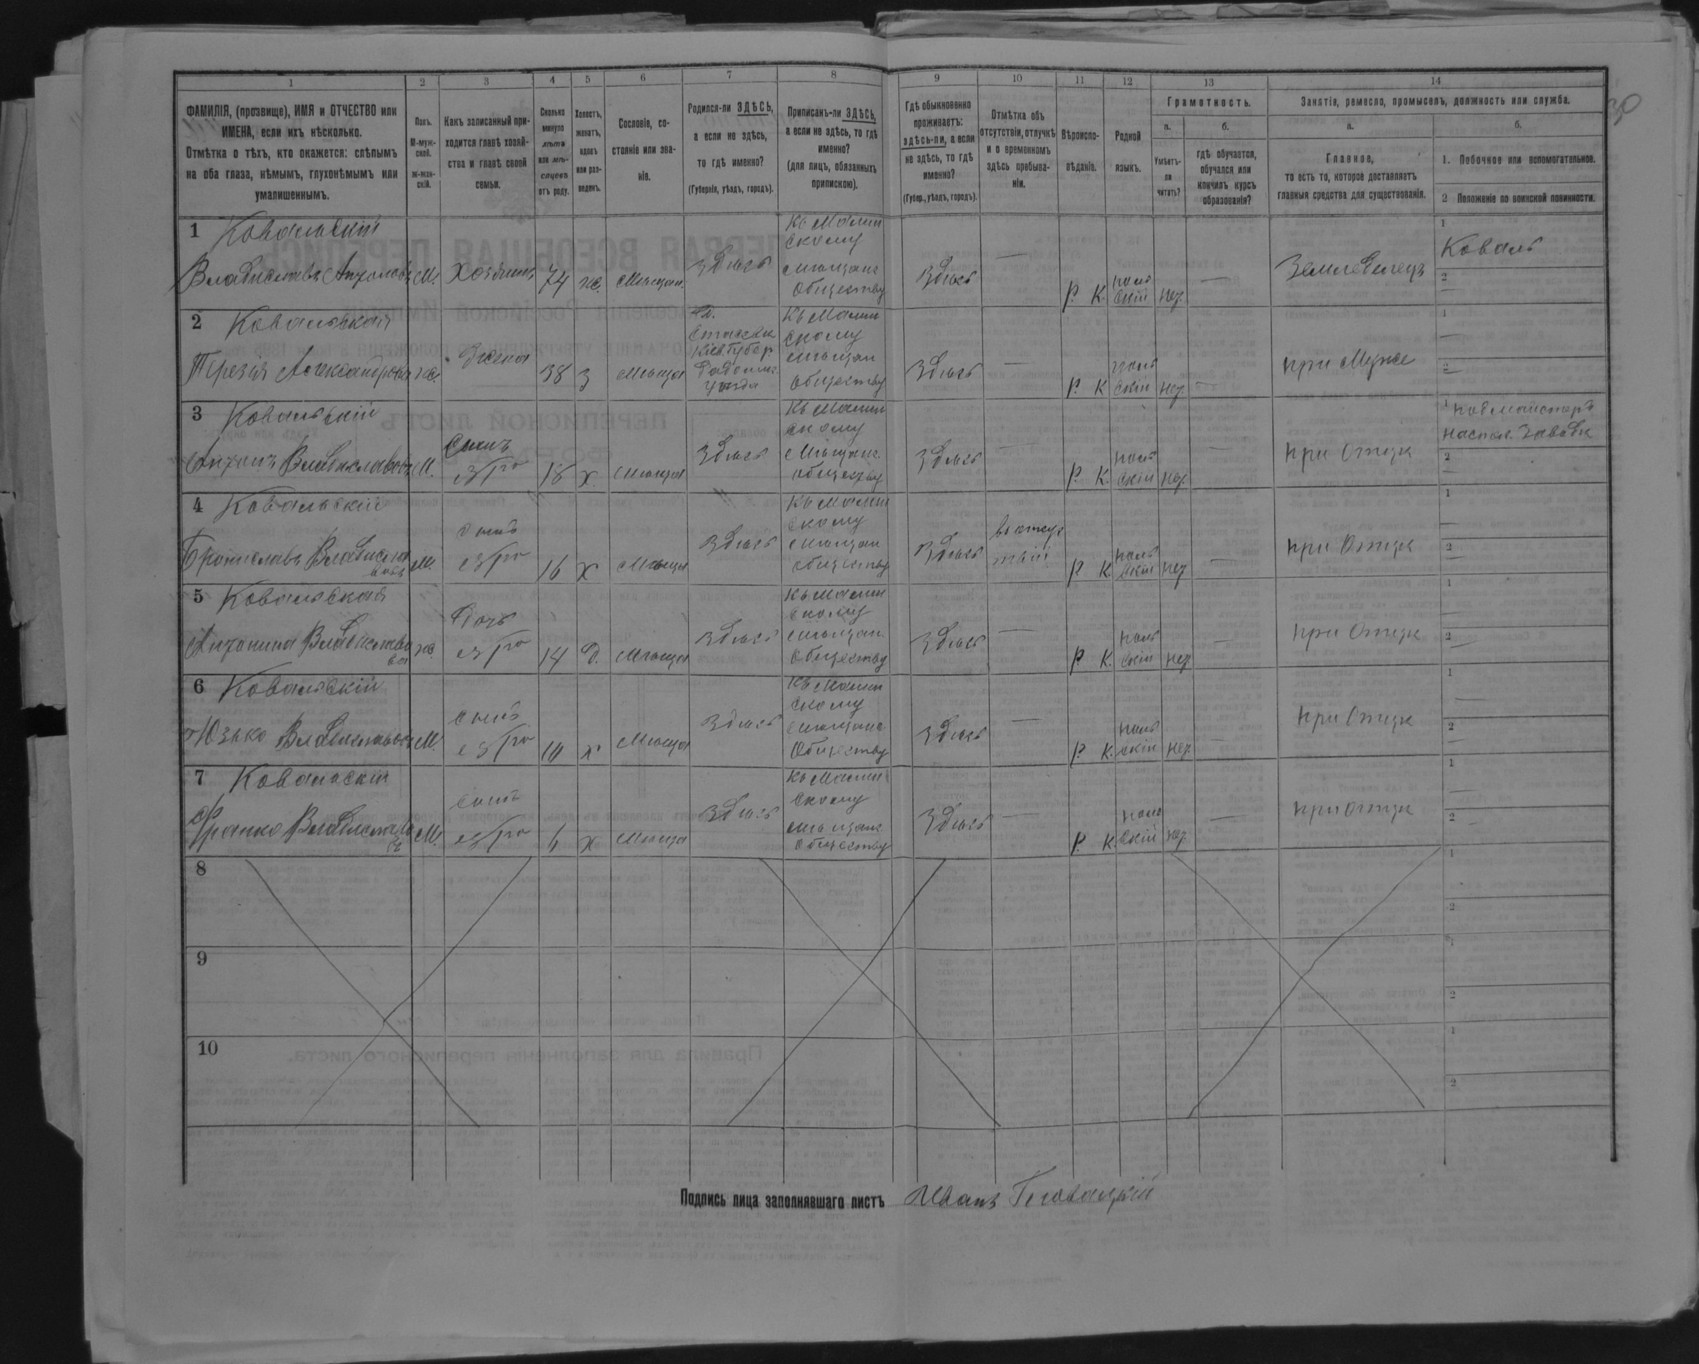 30
1 2 3 4 5 6 7 8 9 10 11 12 13 14
ФАМИЛІЯ, (прозвище), ИМЯ и ОТЧЕСТВО или
ИМЕНА, если ихъ нѣсколько.
Отмѣтка о тѣхъ, кто окажется: слѣпымъ
на оба глаза, нѣмымъ, глухонѣмымъ или
умалишеннымъ.
Полъ.
М-муж-
ской.
Ж-жен-
скій.
Какъ записанный при-
ходится главѣ хозяй-
ства и главѣ своей
семьи.
Сколько
минуло
лѣтъ
или мѣ-
сяцевъ
отъ роду.
Холостъ,
женатъ,
вдовъ
или раз-
веденъ.
Сословіе, со-
стояніе или зва-
ніе.
Родился-ли ЗДѢСЬ,
а если не здѣсь,
то гдѣ именно?
(Губернія, уѣздъ, городъ).
Приписанъ-ли ЗДѢСЬ,
а если не здѣсь, то гдѣ
именно?
(для лицъ, обязанныхъ
припискою).
Гдѣ обыкновенно
проживаетъ:
здѣсь-ли, а если
не здѣсь, то гдѣ
именно?
(Губер., уѣздъ, городъ).
Отмѣтка объ
отсутствіи, отлучкѣ
и о временномъ
здѣсь пребыва-
ніи.
Вѣроиспо-
вѣданіе.
Родной
языкъ.
Грамотность.
а.
Умѣетъ-
ли
читать?
б.
гдѣ обучается,
обучался или
кончилъ курсъ
образованія?
Занятія, ремесло, промыселъ, должность или служба.
а.
Главное,
то есть то, которое доставляетъ
главныя средства для существованія.
б.
1. Побочное или вспомогательное.
2 Положеніе по воинской повинности.
1 Ковальскій
Владиславъ Антоновъ М. Хозяинъ 74 же. мѣщан. Здѣсь
Къ Малин
скому
мѣщанс
обществу
Здѣсь — Р. К. поль
скій нет — Земледелецъ
1 Коваль
2 —
2 Ковальская
Терезія Александрова же. Жена 38 З мѣщан
Къ Малин
скому
мѣщан
обществу
Здѣсь — Р. К поль
скій нет — при Мужѣ
1 —
2 —
3 Ковальскій
Антонъ Владиславовъ М. Сынъ
его 18 Х мѣщан Здѣсь
Къ Малин
скому
мѣщанс
обществу
Здѣсь — Р. К. поль
скій нет — при Отцѣ
1
2 —
4 Ковальскій
Брониславъ Владисла
вовъ М. сынъ
его 16 Х мѣщан Здѣсь
Къ Малин
скому
мѣщан
обществу
Здѣсь Р. К поль
скій нет — при Отцѣ
1 —
2 —
5 Ковальская
Антонина Владиславо
ва же. Дочь
его 14 Д. мѣщан Здѣсь
Къ Малин
скому
мѣщан
обществу
Здѣсь — Р. К. поль
скій нет — при Отцѣ
1 —
2 —
6 Ковальскій
Юзько Владиславовъ М. сынъ
его 10 х мѣщан Здѣсь
Къ Малин
скому
мѣщанс
Обществу
Здѣсь — Р. К. поль
скій нет — при Отцѣ
1 —
2 —
7 Ковальскій
Франко Владиславо
въ М. сынъ
его х мѣщан Здѣсь
Къ Малин
скому
мѣщанс
обществу
Здѣсь — Р. К. поль
скій нет — при отцѣ
1 —
2 —
8 1
2
9 1
2
10 1
2
Подпись лица заполнявшаго листъ Иванъ